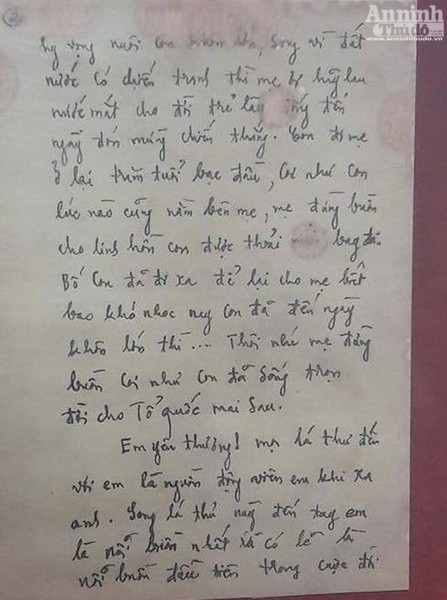 An ninh
Thủ đô
www.anninhthudo.vn
2
hy vọng nuôi con khôn lớn, song vì đất
nước có chiến tranh thì mẹ hãy lau
nước mắt cho đời trẻ lâu sống đến
ngày đón mừng chiến thắng. Con đi mẹ
ở lại trăm tuổi bạc đầu, coi như con
lúc nào cũng nằm bên mẹ, mẹ đừng buồn
cho linh hồn con được thoải mái bay
Bố con đã đi xa để lại cho mẹ biết
bao khó nhọc nay con đã đến ngày
khôn lớn thì... Thôi như mẹ đừng
buồn coi như con đã sống trọn
đời cho Tổ quốc mai sau.
Em yêu thương! mọi lá thư đến
với em là nguồn động viên em khi xa
anh. Song lá thư này đến tay em
là nỗi buồn nhất và có lẽ là
nỗi buồn đầu tiên trong cuộc đời